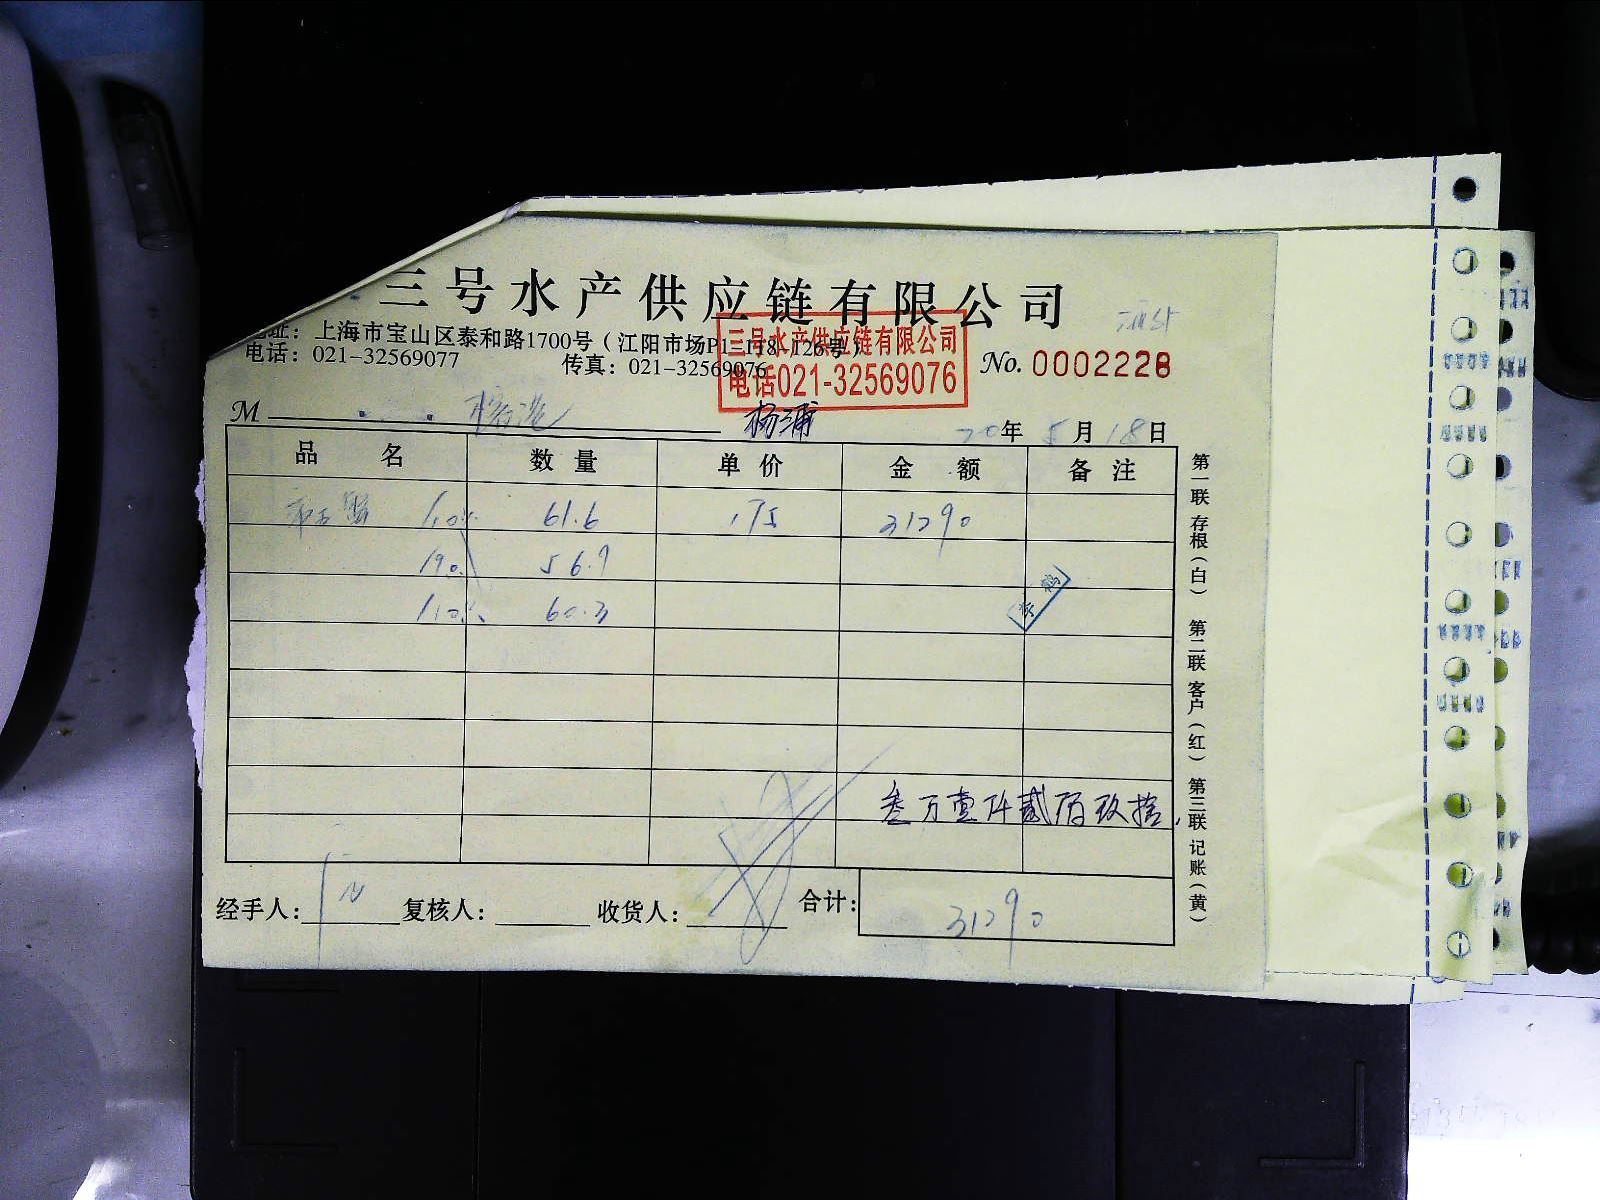 三号水产供应链有限公司
地址：上海市宝山区泰和路1700号（江阳市场P1-118、126号）
电话：021-32569077 传真：021-32569076
三号水产供应链有限公司
电话021-32569076
No. 0002228
M
杨浦
20年5月18日
品 名 数 量 单 价 金 额 备 注
61.6 175 31290
190 56.9
60.3
叁万壹仟贰佰玖拾
经手人： 复核人： 收货人： 合计： 31290
第一联 存根（白） 第二联 客户（红） 第三联 记账（黄）